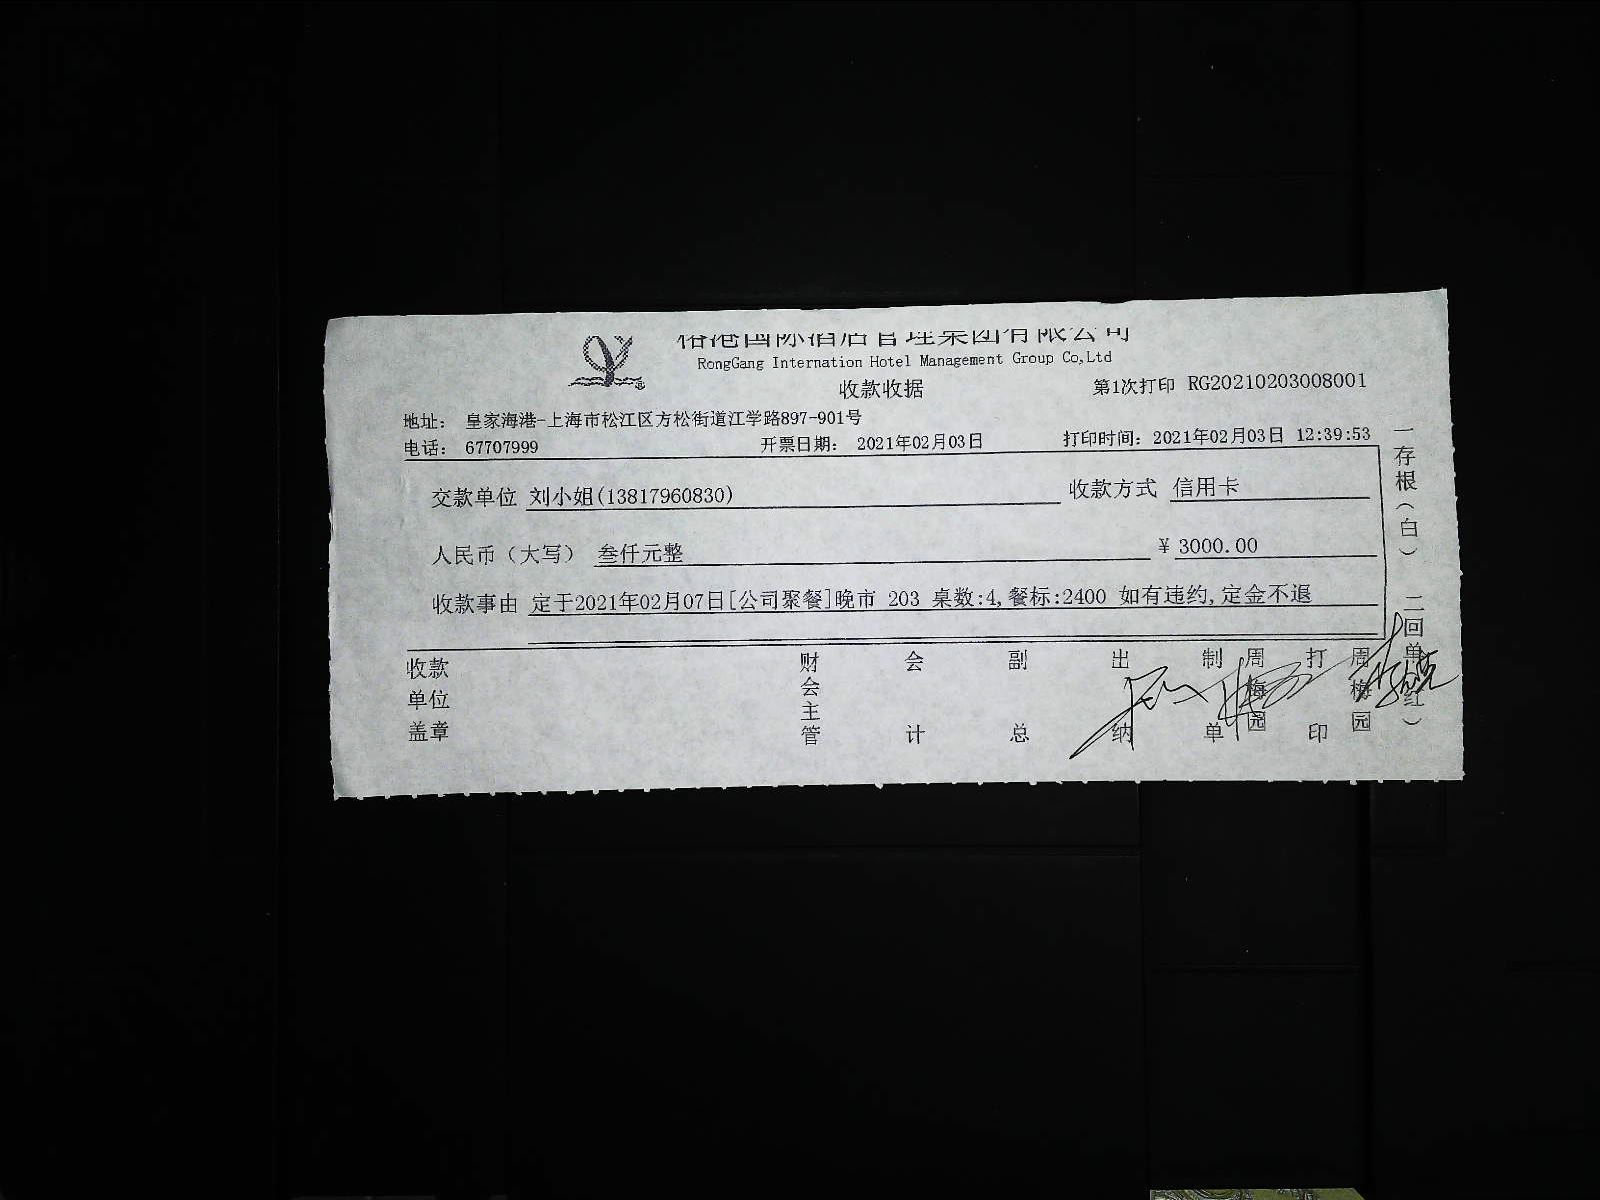 港国际酒店管理集团有限公司
RongGang Internation Hotel Management Group Co,Ltd
收款收据
第1次打印 RG20210203008001
地址： 皇家海港-上海市松江区方松街道江学路897-901号
电话： 67707999 开票日期： 2021年02月03日 打印时间：2021年02月03日 12:39:53
交款单位 刘小姐(13817960830) 收款方式 信用卡
人民币（大写） 叁仟元整 ¥ 3000.00
收款事由 定于2021年02月07日[公司聚餐]晚市 203 桌数:4,餐标:2400 如有违约,定金不退
收款单位盖章 财会主管 会计 副总 出纳 制单 周梅园 打印 周梅园
一存根（白） 二回单（红）